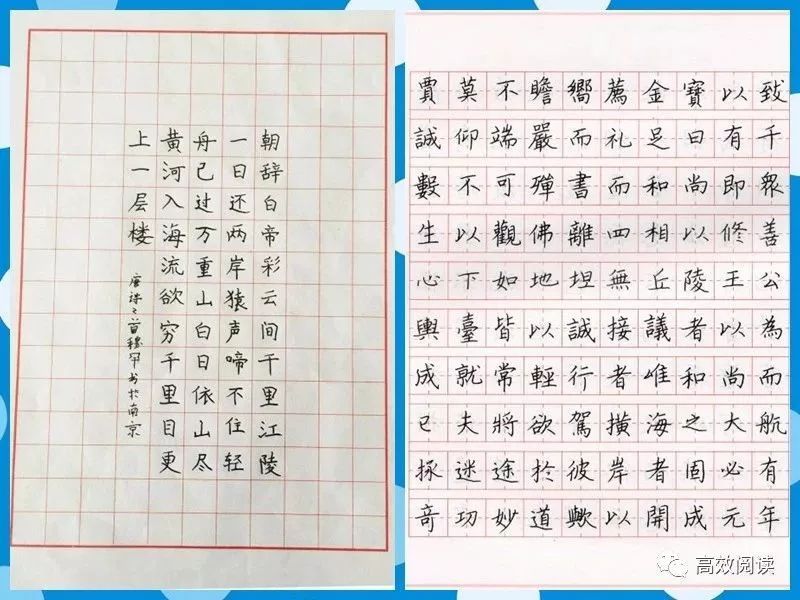 朝辞白帝彩云间千里江陵
一日还两岸猿声啼不住轻
舟已过万重山白日依山尽
黄河入海流欲穷千里目更
上一层楼
唐诗二首穆罕书於南京
賈莫不瞻嚮薦金寶以致
誠仰端嚴而礼足曰有千
數不可殫書而和尚即衆
生以觀佛離四相以修善
心下如地坦無丘陵王公
輿臺皆以誠接議者以為
成就常輕行者唯和尚而
已夫將欲駕橫海之大航
拯迷途於彼岸者固必有
奇功妙道歟以開成元年
高效阅读